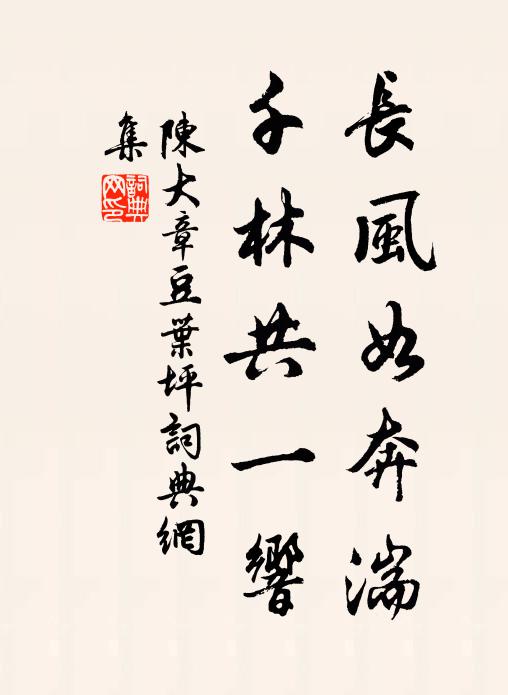 長風如奔湍
千林共一響
陳大章豆葉坪詞典網
集
詞典網印